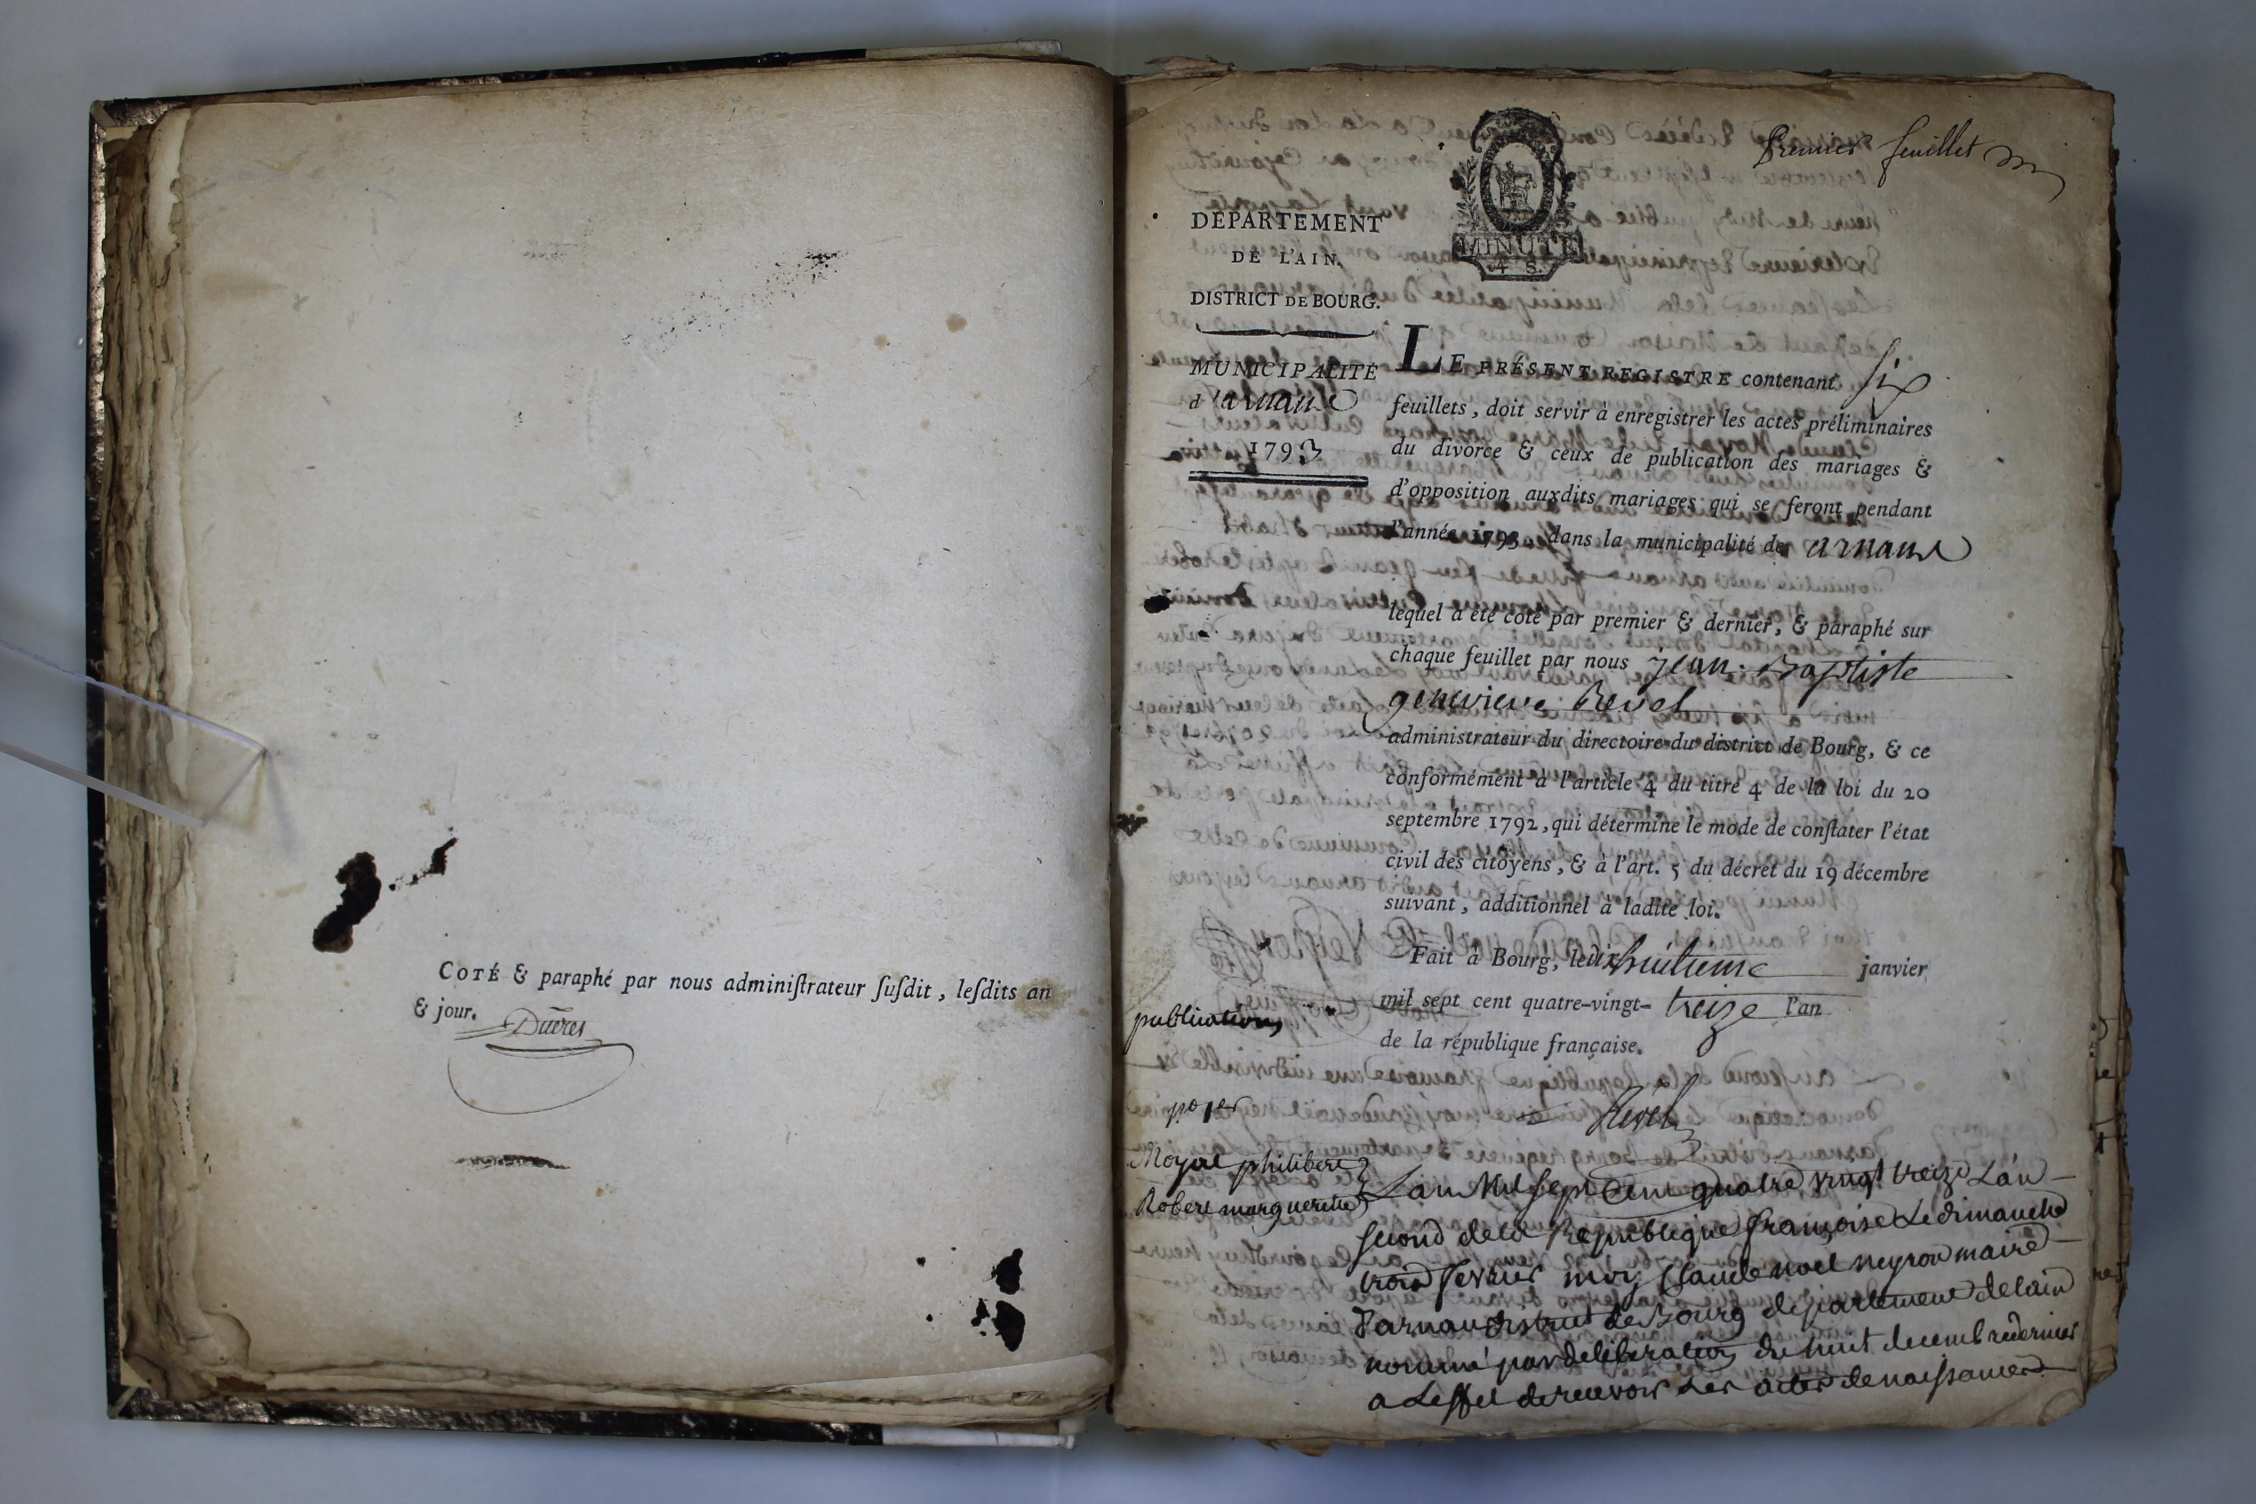 COTÉ & paraphé par nous adminiſtrateur ſuſdit, leſdits an
& jour.
Premier feuillet
MINUTE
4 S.
DÉPARTEMENT
DE L'AIN.
DISTRICT DE BOURG.
MUNICIPALITÉ
d'arnans
1793
LE PRÉSENT REGISTRE contenant six
feuillets, doit servir à enregistrer les actes préliminaires
du divorce & ceux de publication des mariages &
d'opposition auxdits mariages qui se feront pendant
l'année 1793, dans la municipalité de arnans
lequel a été coté par premier & dernier, & paraphé sur
chaque feuillet par nous jean Baptiste
genevieve Revel
administrateur du directoire du district de Bourg, & ce
conformément à l'article 4 du titre 4 de la loi du 20
septembre 1792, qui détermine le mode de conſtater l'état
civil des citoyens, & à l'art. 5 du décret du 19 décembre
suivant, additionnel à ladite loi.
Fait à Bourg, le dixhuitieme janvier
mil sept cent quatre-vingt-treize l'an
de la république française.
Revel
publications
pre 1er
Moyat philibert
Robert marguerite
L'an Mil sept Cent quatre vingt treize L'an
second de la Republique françoise Le dimanche
trois fevrier moy Claude noel neyron maire
D'arnans district de Bourg departement de lain
nommé par deliberation du huit decembre dernier
a Leffet de recevoir Les actes de naissances